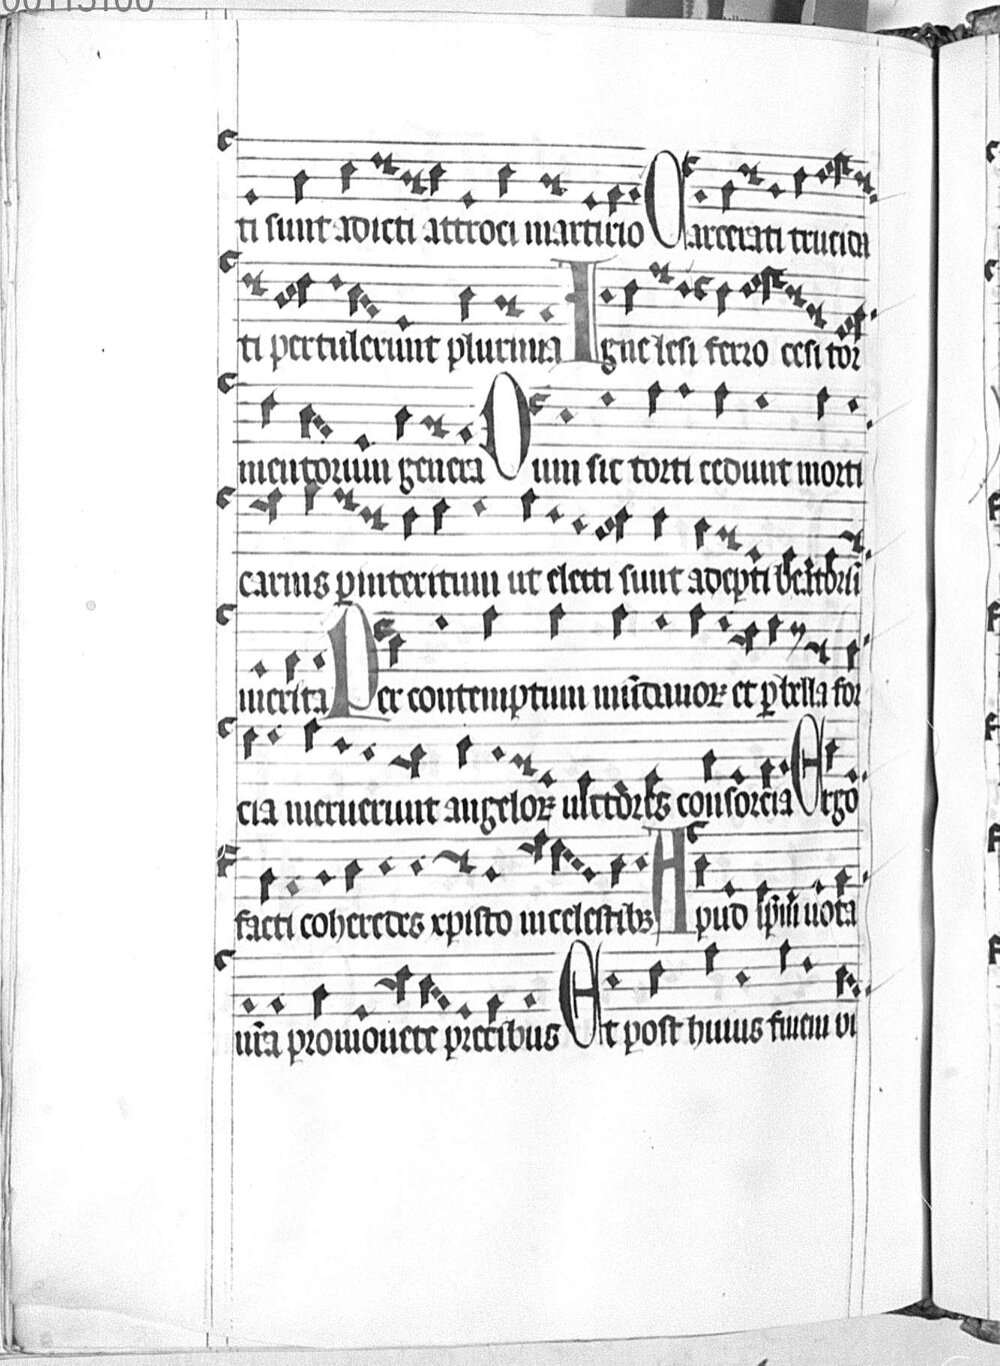 ti sunt adicti attroci martirio Carcerati trucida
ti pertulerunt plurima Igne lesi ferro cesi tor
mentorum genera Dum sic torti cedunt morti
carnis p̱interitum ut electi sunt adepti
merita Per contemptum et ꝑ bella for
cia meruerunt angeloꝝ consorcia Ergo
facti coheredes xpisto in celestibꝫ Apud uota
nr̄a promouete precibus Et post huius finem vi